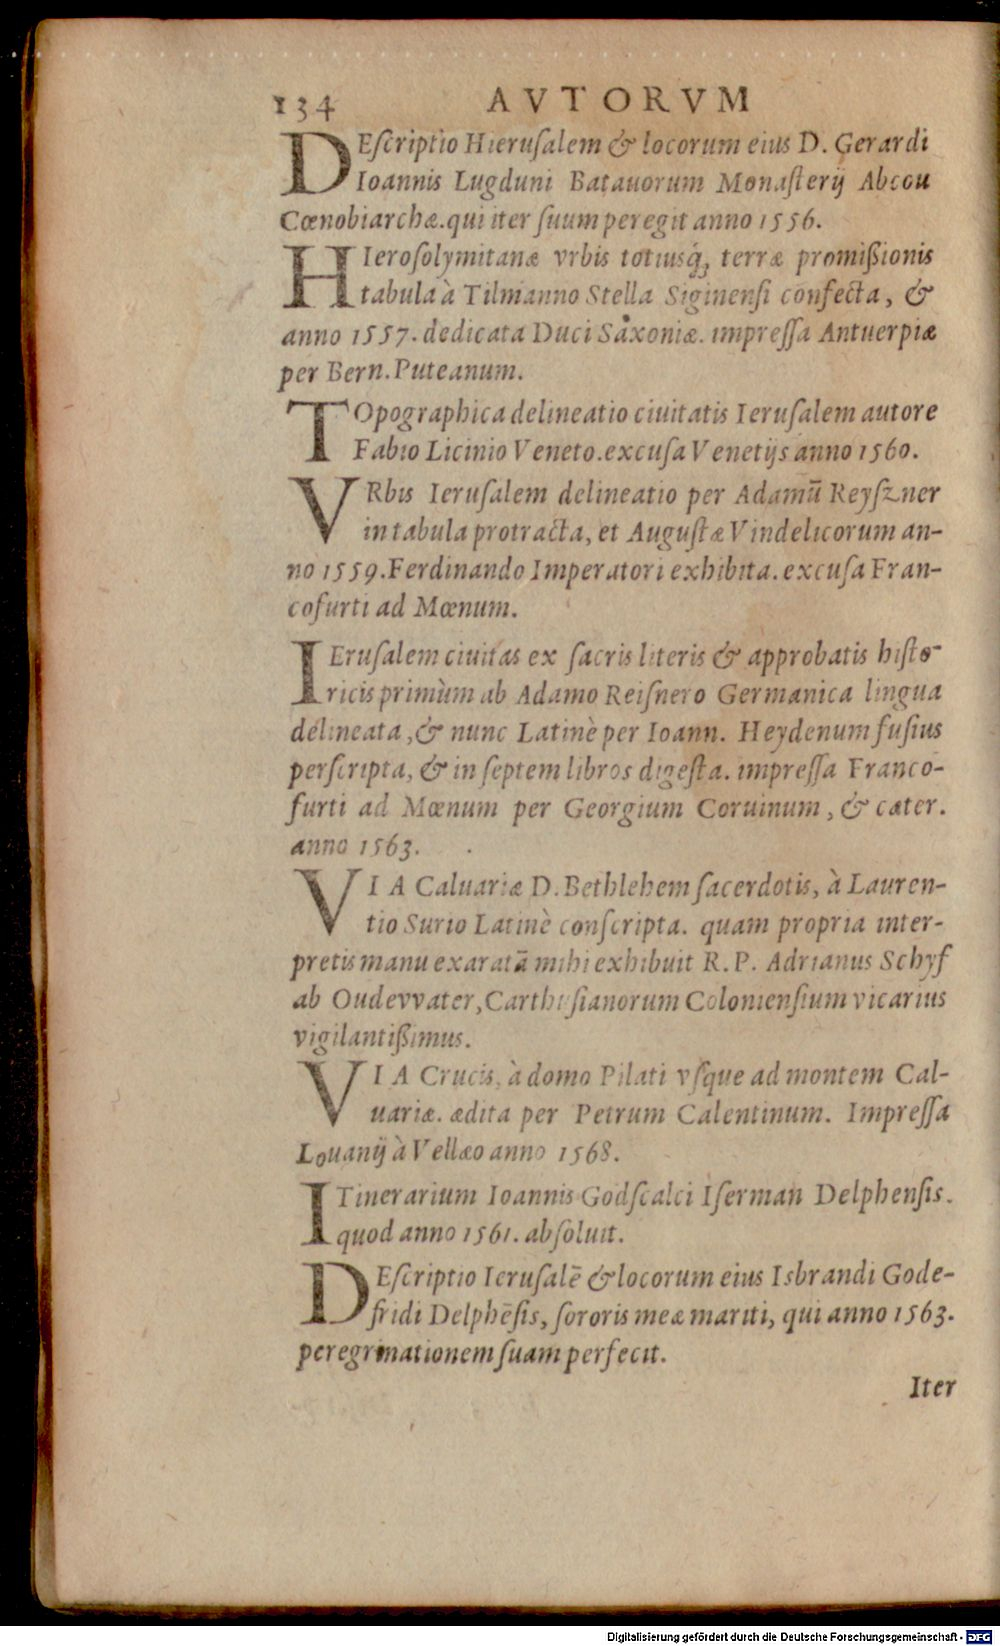 134 AVTORVM
DEſcriptio Hieruſalem & locorum eius D. Gerardi
Ioannis Lugduni Batauorum Monaſterij Abcou
Cœnobiarchæ. qui iter ſuum peregit anno 1556.
HIeroſolymitanæ vrbis totiusq́; terræ promiſſionis
tabula à Tilmanno Stella Siginenſi confecta, &
anno 1557. dedicata Duci Saxoniæ. impreſſa Antuerpiæ
per Bern. Puteanum.
TOpographica delineatio ciuitatis Ieruſalem autore
Fabio Licinio Veneto. excuſa Venetijs anno 1560.
VRbis Ieruſalem delineatio per Adamū Reyſzner
in tabula protracta, et Auguſtæ Vindelicorum an-
no 1559. Ferdinando Imperatori exhibita. excuſa Fran-
cofurti ad Mœnum.
IEruſalem ciuitas ex ſacris literis & approbatis hiſto-
ricis primùm ab Adamo Reiſnero Germanica lingua
delineata, & nunc Latinè per Ioann. Heydenum fuſius
perſcripta, & in ſeptem libros digeſta. impreſſa Franco-
furti ad Mœnum per Georgium Coruinum, & cæter.
anno 1563.
VIA Caluariæ D. Bethlehem ſacerdotis, à Lauren-
tio Surio Latinè conſcripta. quam propria inter-
pretis manu exaratā mihi exhibuit R. P. Adrianus Schyf
ab Oudevvater, Carthuſianorum Colonienſium vicarius
vigilantiſſimus.
VIA Crucis, à domo Pilati vſque ad montem Cal-
uariæ. ædita per Petrum Calentinum. Impreſſa
Louanij à Vellæo anno 1568.
ITinerarium Ioannis Godſcalci Iſerman Delphenſis.
quod anno 1561. abſoluit.
DEſcriptio Ieruſalē & locorum eius Isbrandi Gode-
fridi Delphēſis, ſororis meæ mariti, qui anno 1563.
peregrinationem ſuam perfecit.
Iter
Digitalisierung gefördert durch die Deutsche Forschungsgemeinschaft - DFG